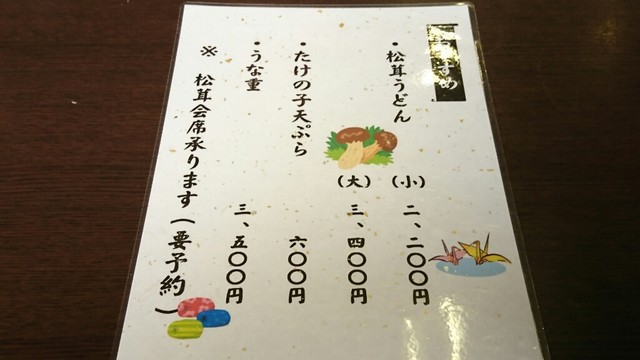 すめ
・松茸うどん
(小) 二、二〇〇円
(大) 三、四〇〇円
・たけの子天ぷら 六〇〇円
・うな重 三、五〇〇円
※ 松茸会席承ります(要予約)